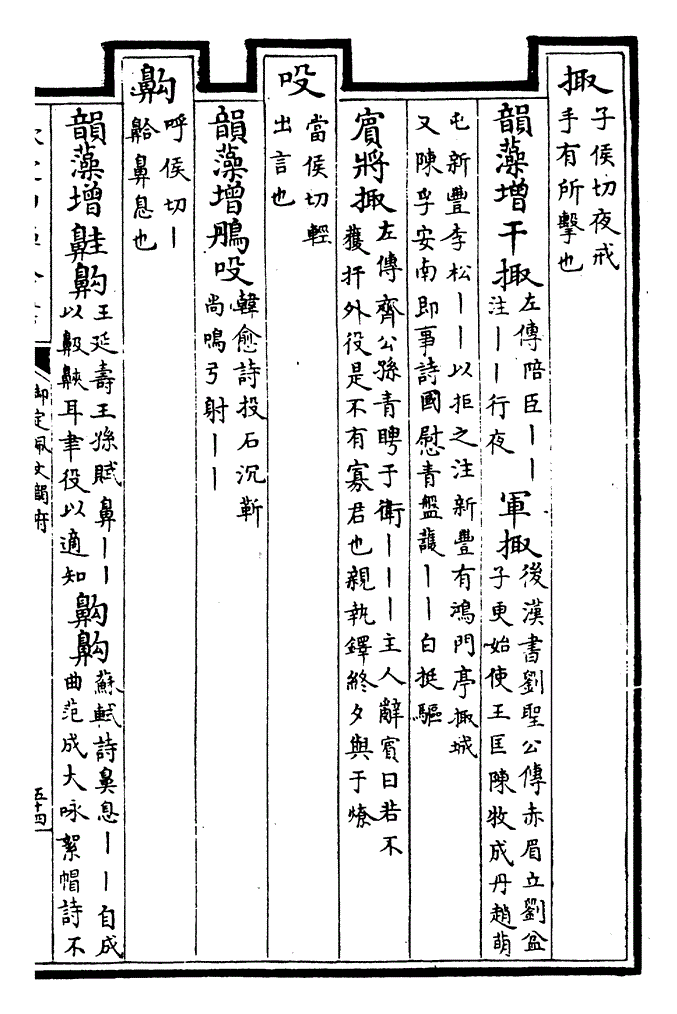 掫子侯切夜戒
手有所擊也
韻藻增干掫左傳陪臣丨丨
注丨丨行夜
軍掫後漢書劉聖公傳赤眉立劉盆
子更始使王匡陳牧成丹趙萌
屯新豐李松丨丨以拒之注新豐有鴻門亭掫城
又陳孚安南即事詩國慰青盤護丨丨白挺驅
賔將掫左傳齊公孫青聘于衛丨丨丨主人辭賔曰若不
獲扞外役是不有寡君也親執鐸終夕與于燎
吺當侯切輕
出言也
韻藻增鴅吺韓愈詩投石沉靳
尚鳴弓射丨丨
齁呼侯切丨
䶎鼻息也
韻藻增齁王延壽王孫賦鼻丨丨
以耳聿役以適知
齁齁蘇軾詩鼻息丨丨自成
曲范成大咏絮帽詩不
御定佩文韻府
五十四